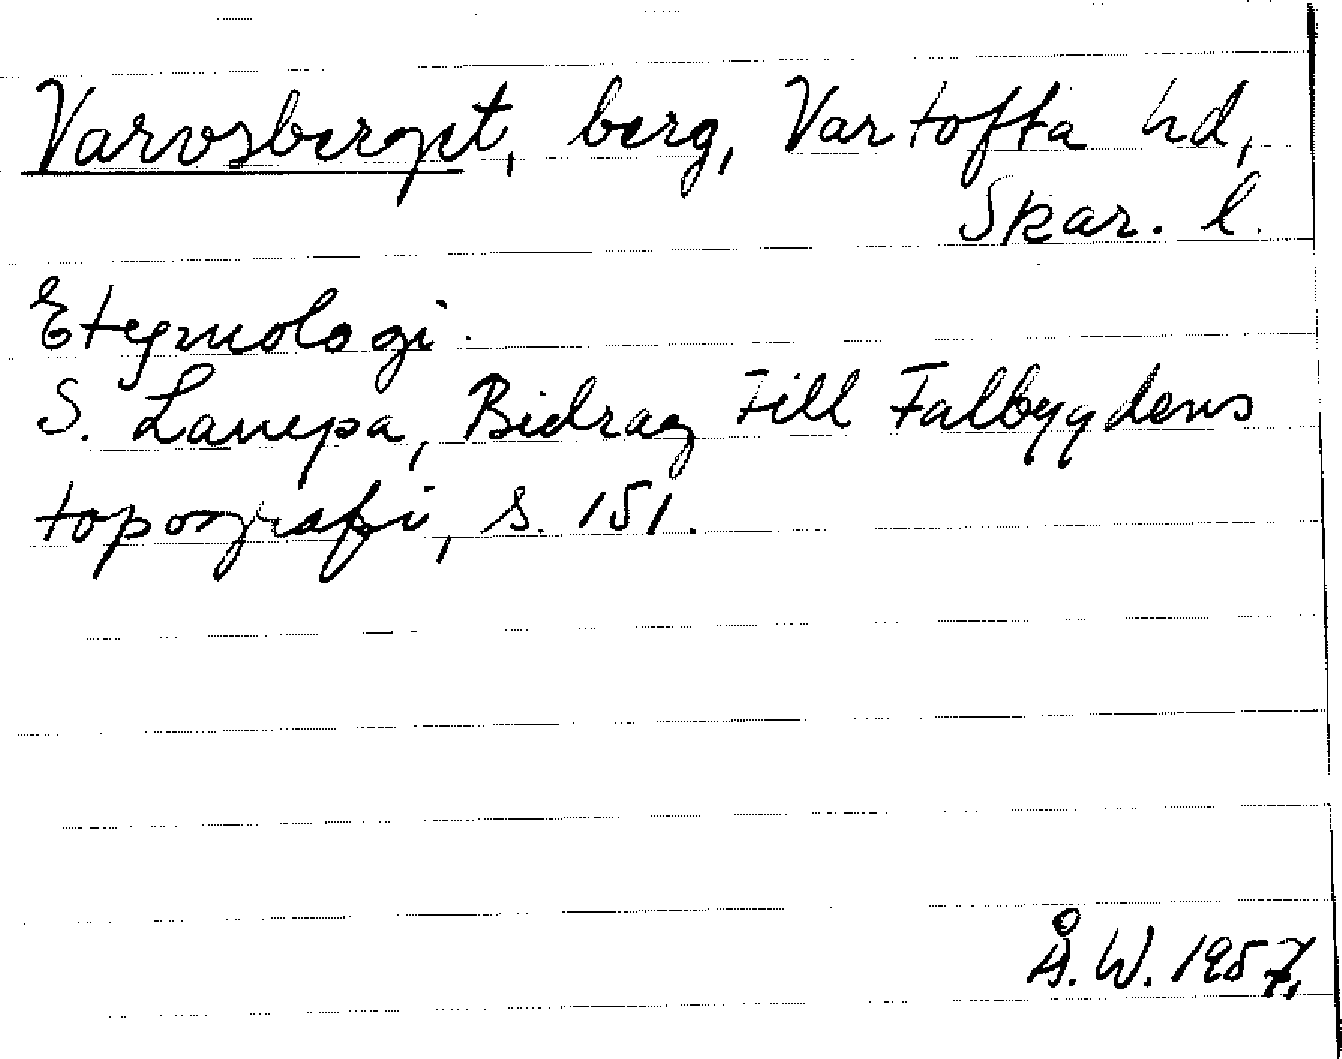 Varvsberget, berg, Vartofta hd,
Skar. l.
Etymologi.
S. Lampa, Bidrag till Falbygdens
topografi, s. 151.
Å. W. 1957.